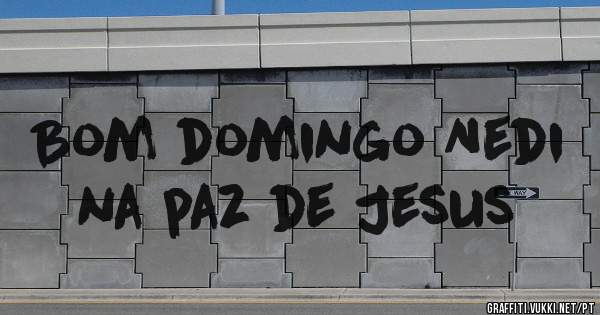 BOM DOMINGO NEDI
NA PAZ DE JESUS
WAY
GRAFFITI.VUKKI.NET/PT